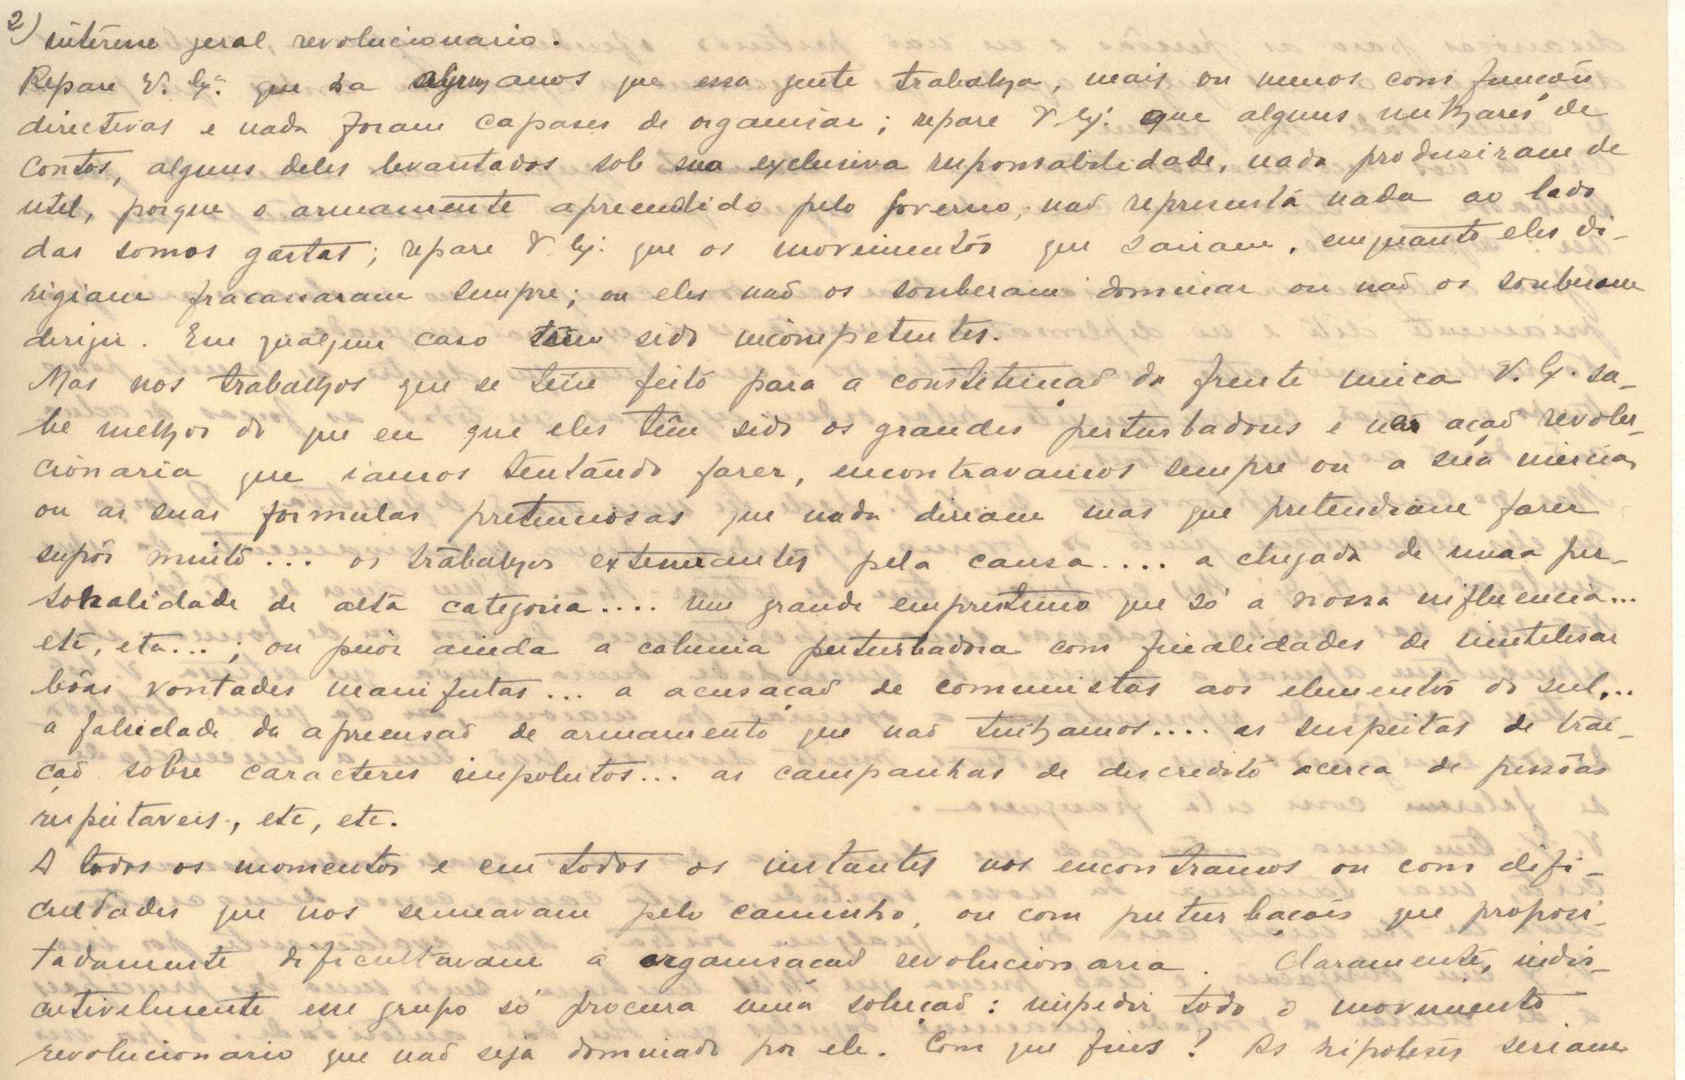 2) interêsse geral revolucionario.
Repare V. Ex.ª que ha alguns anos que essa gente trabalha, mais ou menos com funções
directivas e nada foram capases de organisar; repare V Ex.ª que alguns milhares de
contos, alguns deles levantados sob sua exclusiva responsabilidade, nada produziram de
util, porque o armamento apreendido pelo governo, não representa nada ao lado
das somas gastas; repare V. Ex.ª que os movimentos que sairam, emquanto eles di-
rigiam fracassaram sempre; ou eles não os souberam dominar ou não os souberam
dirijir. Em qualquer caso têem sido incompetentes.
Mas nos trabalhos que se têm feito para a constituição da frente unica V. Ex. sa-
be melhor do que eu que eles têm sido os grandes perturbadores e na ação revolu-
cionaria que iamos tentando fazer, encontravamos sempre ou a sua inercia,
ou as suas formulas pretenciosas que nada diziam mas que pretendiam fazer
supôr muito... os trabalhos extenuantes pela causa.... a chegada de uma per-
sonalidade de alta categoria.... um grande emprestimo que só a nossa influencia...
etc, etc...; ou peior ainda a calunia perturbadora com finalidades de inutilisar
bôas vontades manifestas... a acusação de comunistas aos elementos do sul...
a falsidade da apreensão de armamento que não tinhamos.... as suspeitas de trai-
ção sobre caracteres impolutos... as campanhas de descredito acerca de pessôas
respeitaveis, etc, etc.
A todos os momentos e em todos os instantes nos encontramos ou com difi-
culdades que nos semeavam pelo caminho, ou com perturbações que proposi-
tadamente dificultavam a organisação revolucionaria. Claramente, indis-
cutivelmente esse grupo só procura uma solução: impedir todo o movimento
revolucionario que não seja dominado por ele. Com que fins? As hipoteses seriam